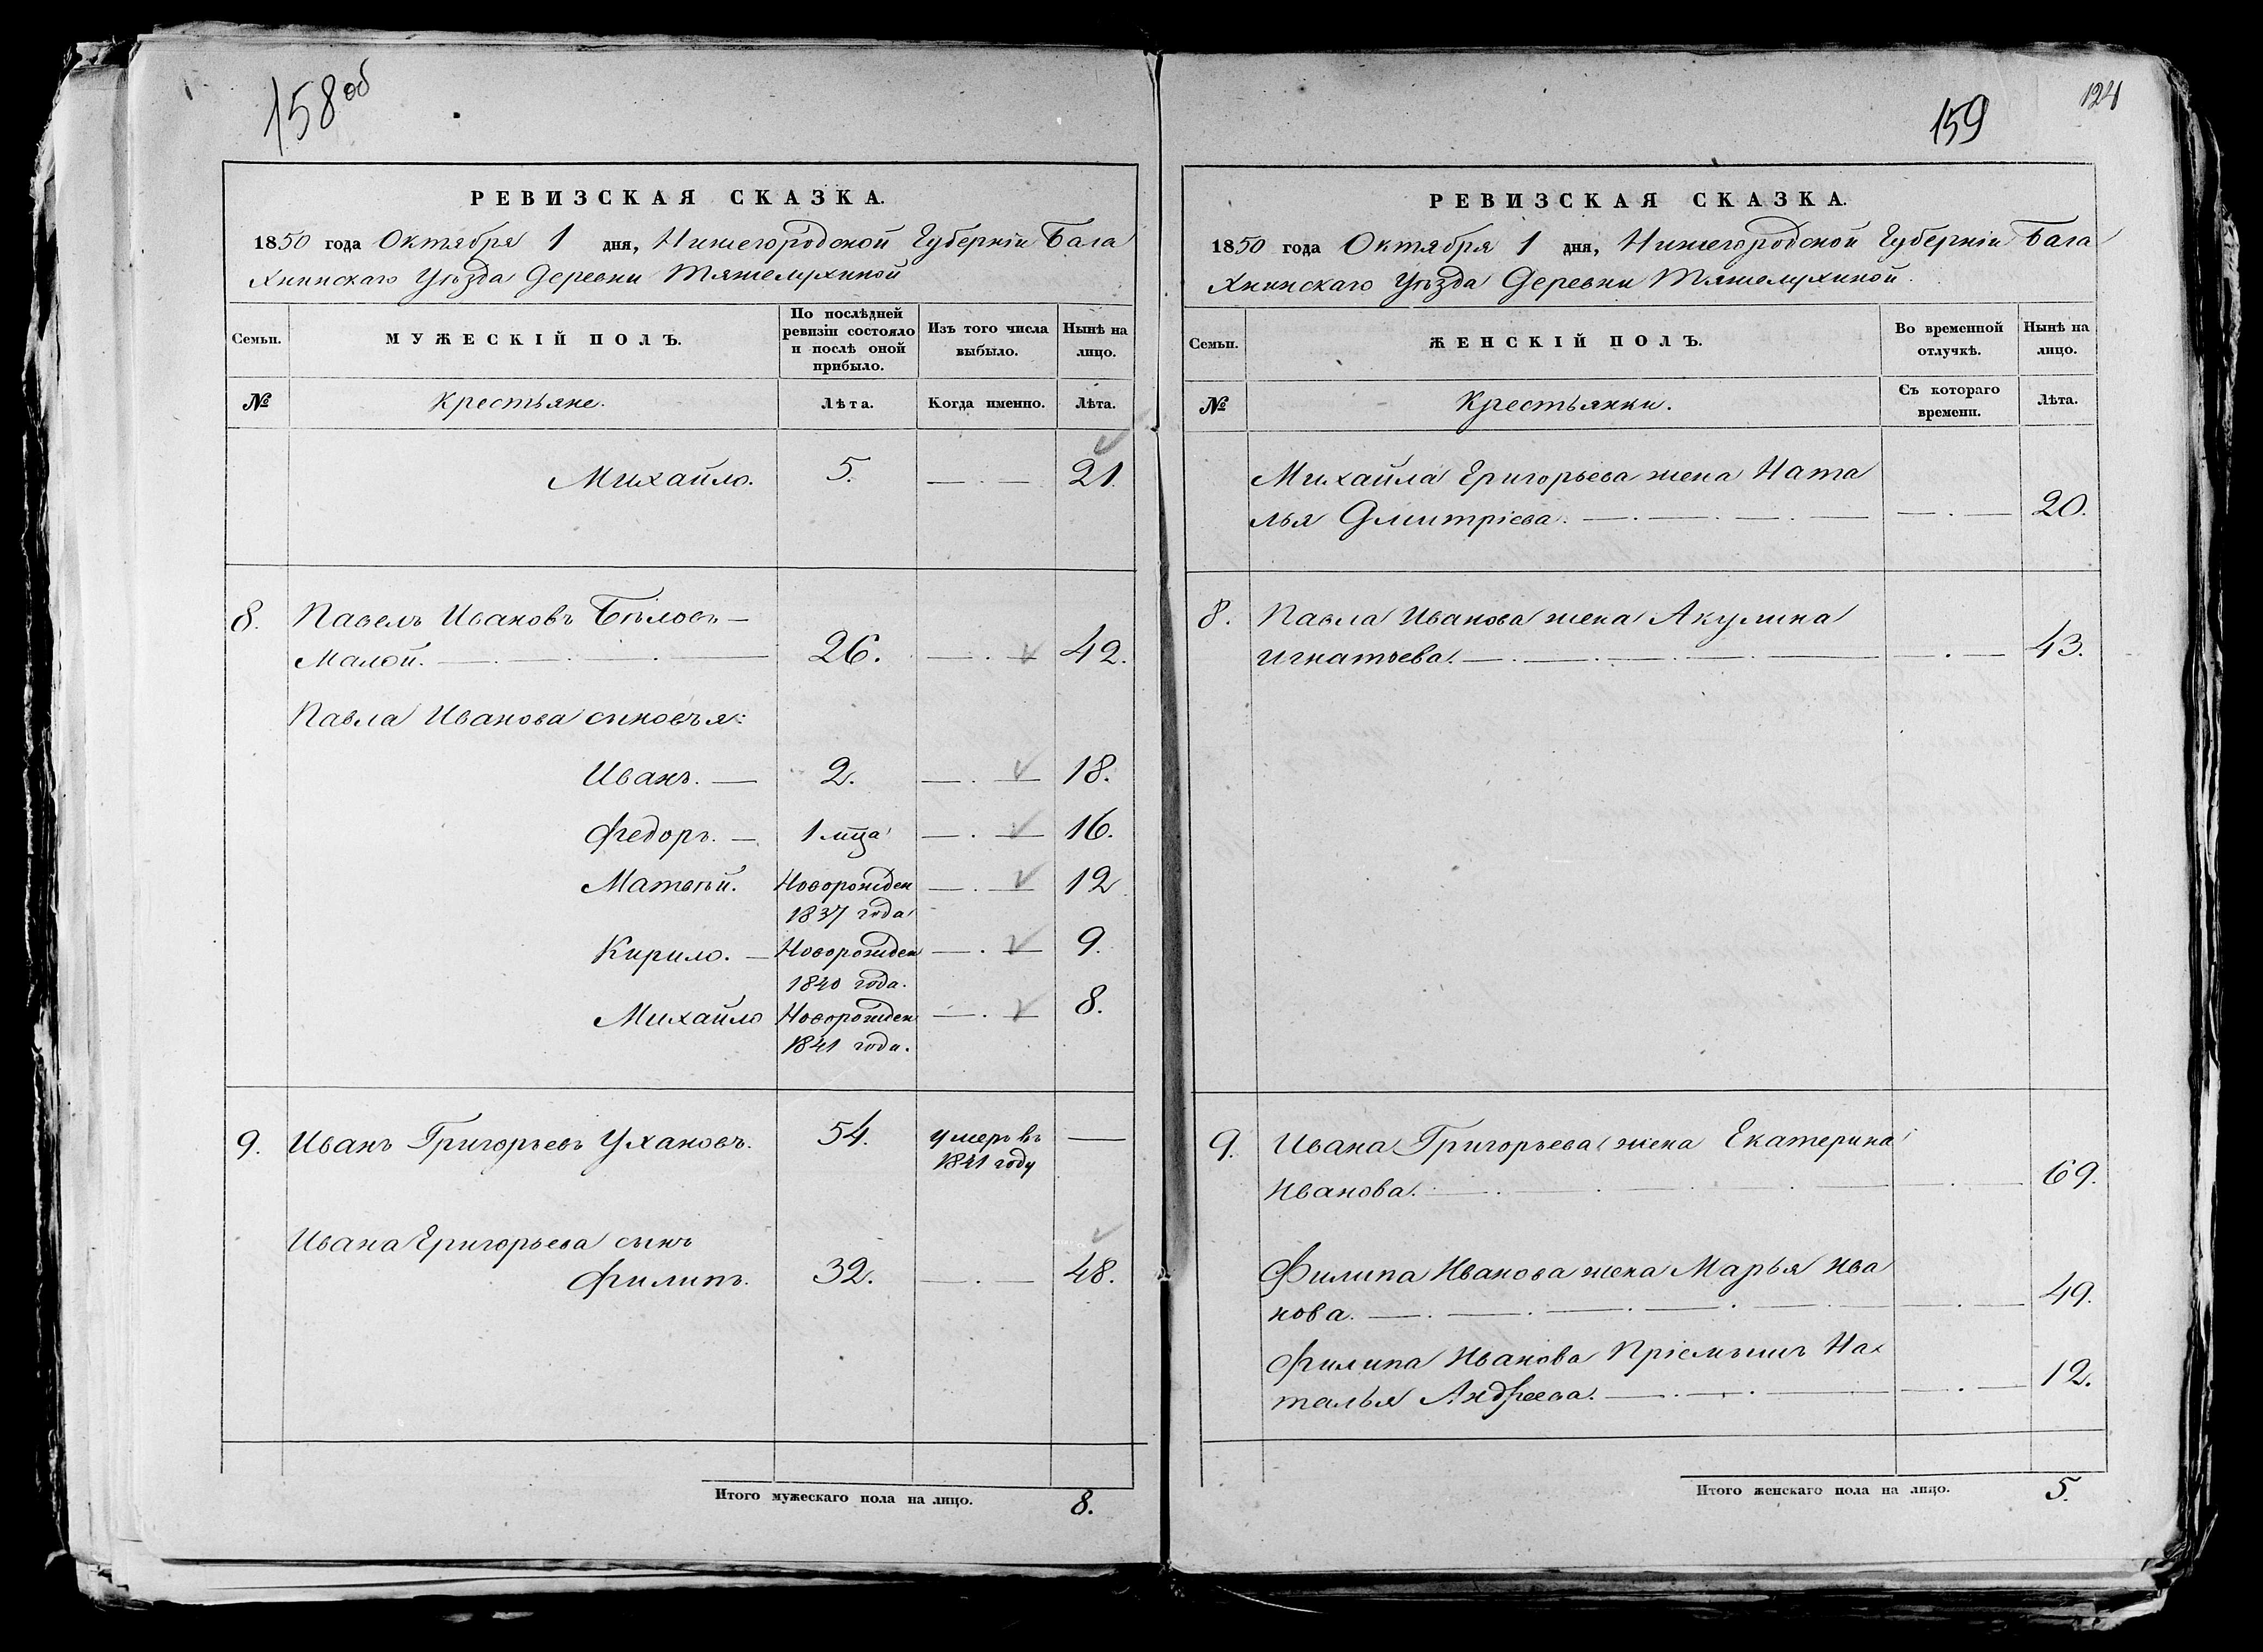 158 об
РЕВИЗСКАЯ СКАЗКА.
1850 года Октября 1 дня, Нижегородской Губерніи Бала
хнинскаго Уѣзда Деревни Тяжелухиной
Семьи.
МУЖЕСКІЙ ПОЛЪ.
По послѣдней
ревизіи состояло
и послѣ оной
прибыло.
Изъ того числа
выбыло.
Нынѣ на
лицо.
№
Крестьяне.
Лѣта.
Когда именно.
Лѣта.
Михайло. 5. 21.
8. Павелъ Ивановъ Бѣловъ
Малой. 26. 42.
Павла Иванова сыновья:
Иванъ. 2. 18.
Федоръ. 1 мца 16.
Матвѣй. Новорожден 12
1837 года
Кирило. Новорожден 9.
1840 года.
Михайло Новорожден 8.
1841 года.
9. Иванъ Григорьевъ Ухановъ. 54. умеръ въ
1841 году
Ивана Григорьева сынъ
Филипъ. 32. 48.
Итого мужескаго пола на лицо. 8.
159
124
РЕВИЗСКАЯ СКАЗКА.
1850 года Октября 1 дня, Нижегородской Губерніи Бала
хнинскаго Уѣзда Деревни Тяжелухиной.
Семьи.
ЖЕНСКІЙ ПОЛЪ.
Во временной
отлучкѣ.
Нынѣ на
лицо.
№
Крестьянки.
Съ котораго
времени.
Лѣта.
Михайла Григорьева жена Ната
лья Дмитріева. 20.
8. Павла Иванова жена Акулина
Игнатьева. 43.
9. Ивана Григорьева жена Екатерина
Иванова. 69.
Филипа Иванова жена Марья Ива
нова. 49.
Филипа Иванова Пріемышъ На
талья Андреева. 12.
Итого женскаго пола на лицо. 5.